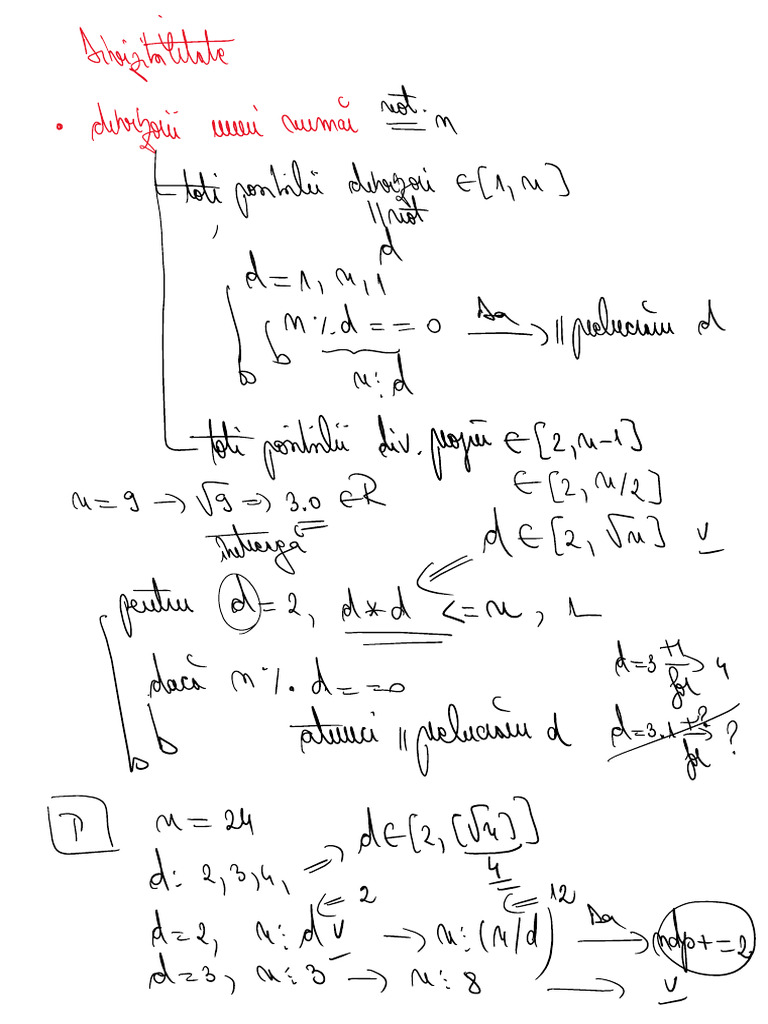 Divizibilitate
• divizorii unui număr not. n
toti posibilii divizori ∈ [1, n]
// not
d
d = 1, n, 1
n % d == 0 Da → // prelucrăm d
n ⋮ d
toti posibilii div. proprii ∈ [2, n-1]
∈ [2, n/2]
n = 9 → √9 => 3.0 ∈ R
întreagă
d ∈ [2, √n] v
pentru d = 2, d * d <= n, 1
dacă n % d == 0
d = 3 +1 → 4
for
atunci // prelucrăm d
d = 3.1 +? → ?
for
P n = 24
d ∈ [2, [√n]]
4
d: 2, 3, 4, =>
<= 2 <= 12
d = 2, n ⋮ d v → n ⋮ (n/d) Da → ndp += 2
d = 3, n ⋮ 3 → n ⋮ 8 → v